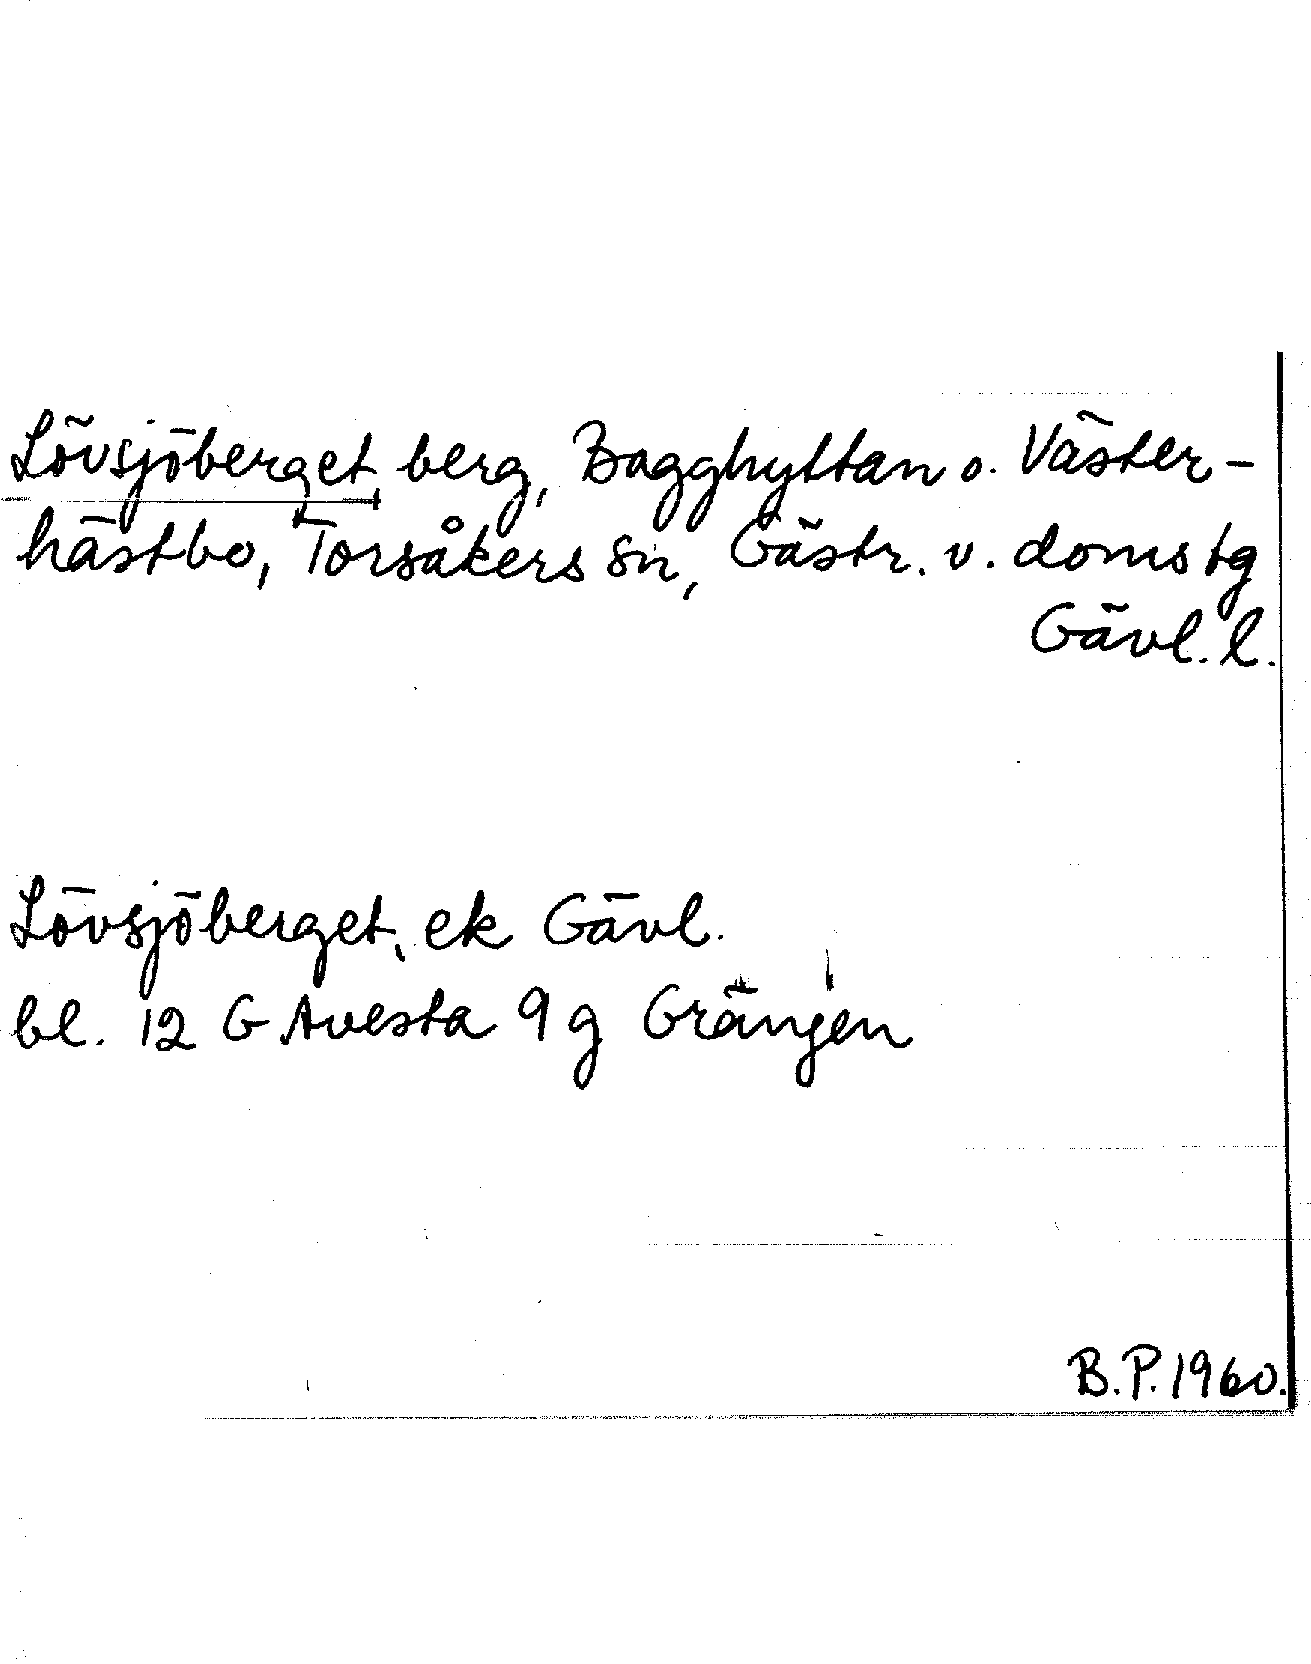 Lövsjöberget, berg, Bagghyttan o. Väster-
hästbo, Torsåkers sn, Gästr. v. domstg
Gävl. l.
Lövsjöberget, ek Gävl.
bl. 12 G Avesta 9 g Grängen
B.P. 1960.